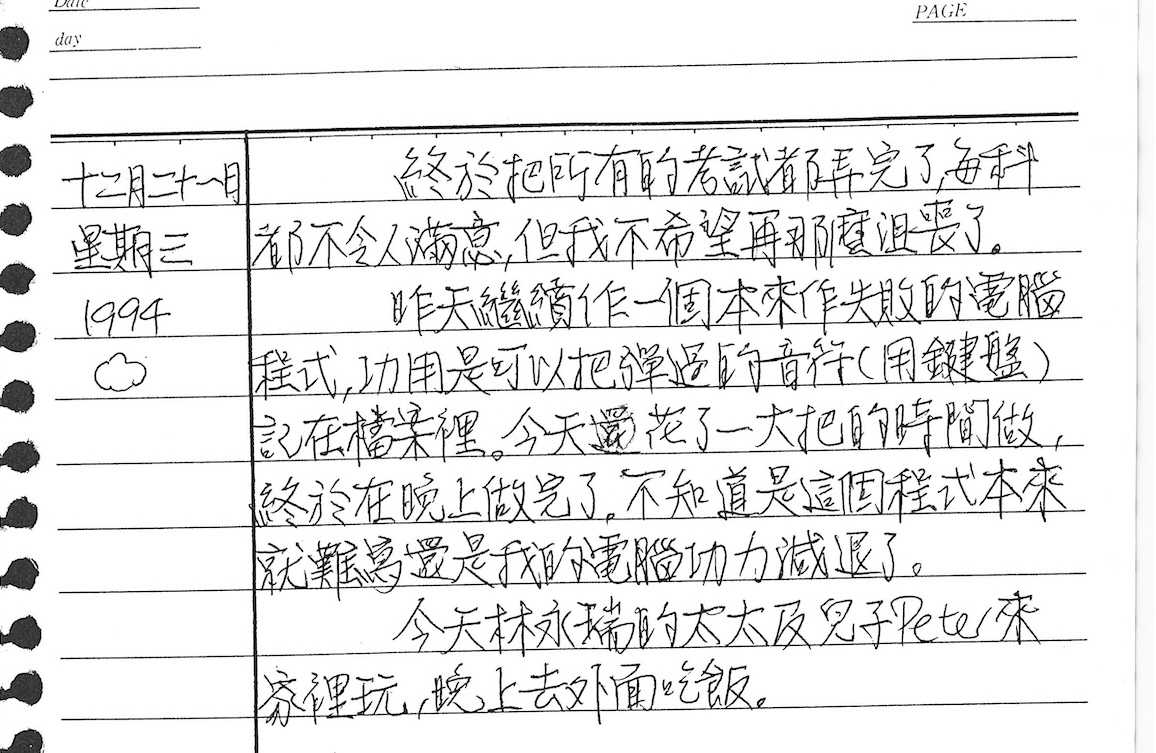 Date
PAGE
day
十二月二十一月
終於把所有的考試都弄完了,每科
星期三
都不令人滿意,但我不希望再那麼沮喪了。
1994
昨天繼續作一個本來作失敗的電腦
程式,功用是可以把彈過的音符(用鍵盤)
記在檔案裡。今天還花了一大把的時間做,
終於在晚上做完了。不知道是這個程式本來
就難寫還是我的電腦功力減退了。
今天林永瑞的太太及兒子Peter來
家裡玩,晚上去外面吃飯。